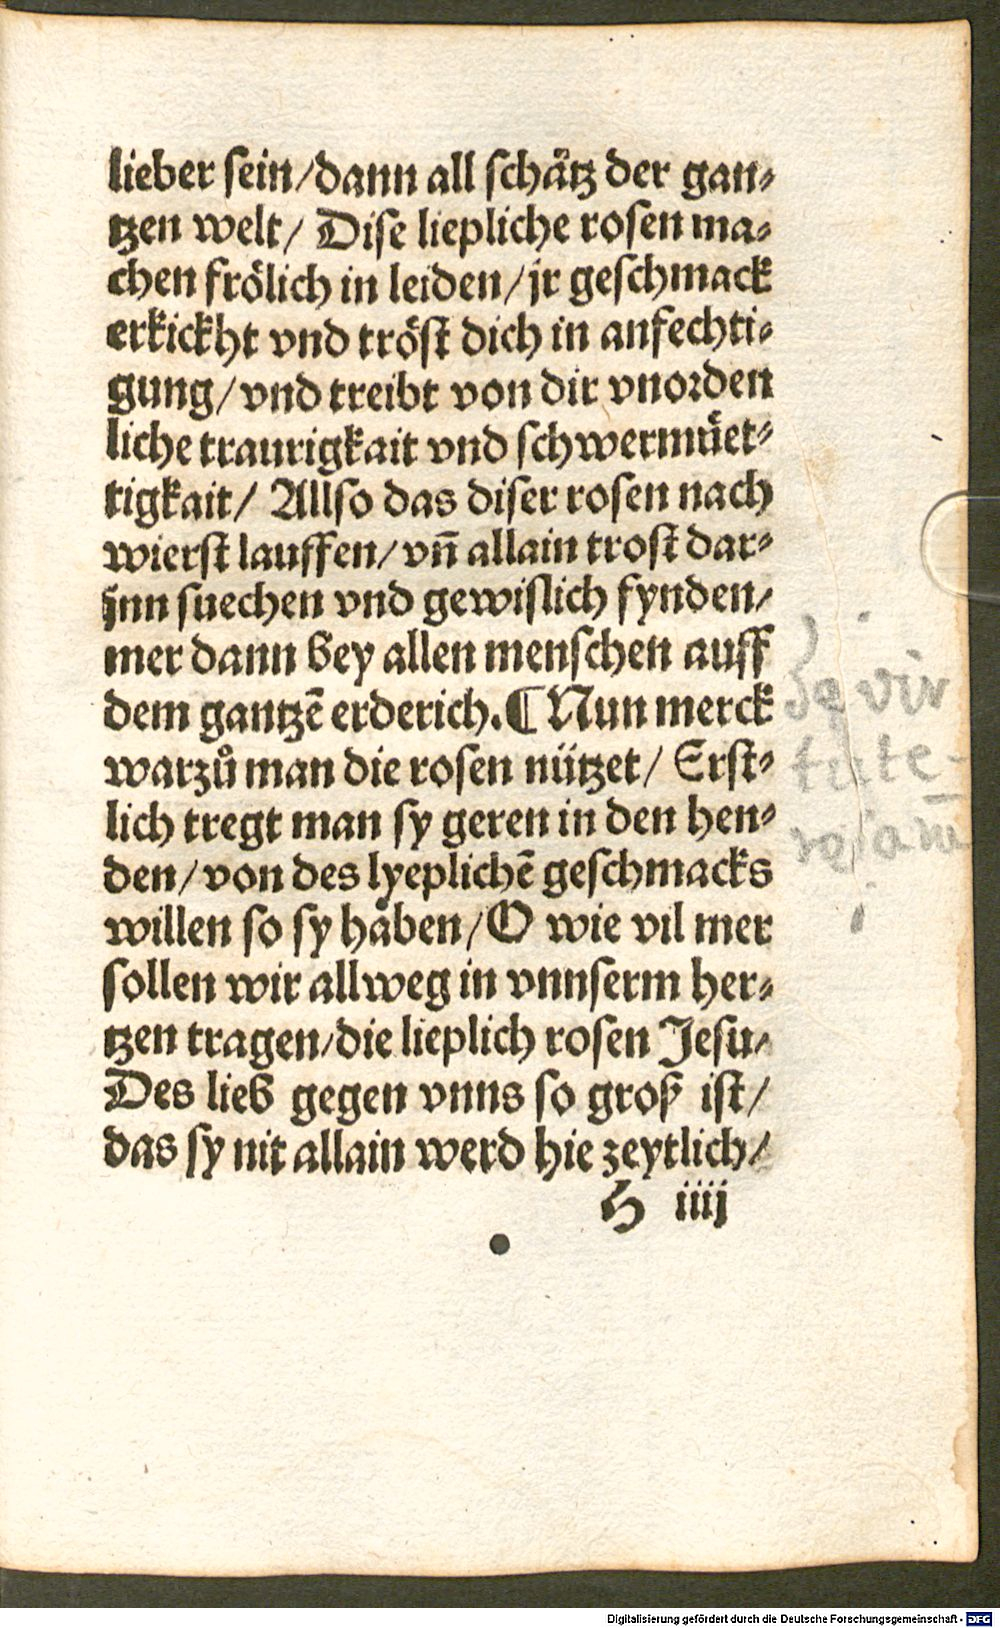 lieber sein/dann all schätz der gan-
tzen welt/ Dise liepliche rosen ma-
chen frölich in leiden/jr geschmack
erkickht vnd tröst dich in anfechti-
gung/vnd treibt von dir vnorden
liche traurigkait vnd schwermuͤet-
tigkait/ Allso das diser rosen nach
wierst lauffen/vn̄ allain trost dar-
jnn suechen vnd gewislich fynden/
mer dann bey allen menschen auff
dem gantzē erderich.¶Nun merck
warzů man die rosen nützet/ Erst-
lich tregt man sy geren in den hen-
den/von des lyeplichē geschmacks
willen so sy haben/O wie vil mer
sollen wir allweg in vnnserm her-
tzen tragen/die lieplich rosen Jesu/
Des lieb gegen vnns so groß ist/
das sy nit allain werd hie zeytlich/
H iiij
vir
tute-
Digitalisierung gefördert durch die Deutsche Forschungsgemeinschaft - DFG